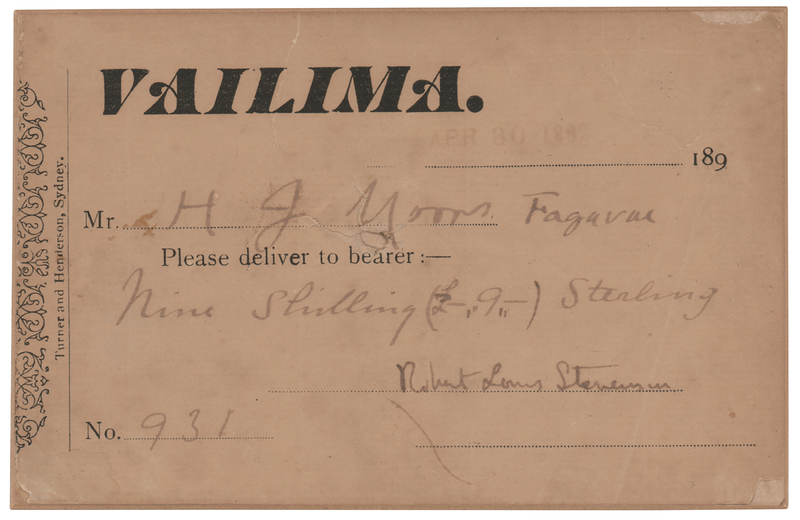 VAILIMA.
APR 30 1892
189
Mr. H J Moors Fagavae
Please deliver to bearer :—
Nine Shilling (£–,,9,,–) Sterling
Robert Louis Stevenson
No. 931
Turner and Henderson, Sydney.